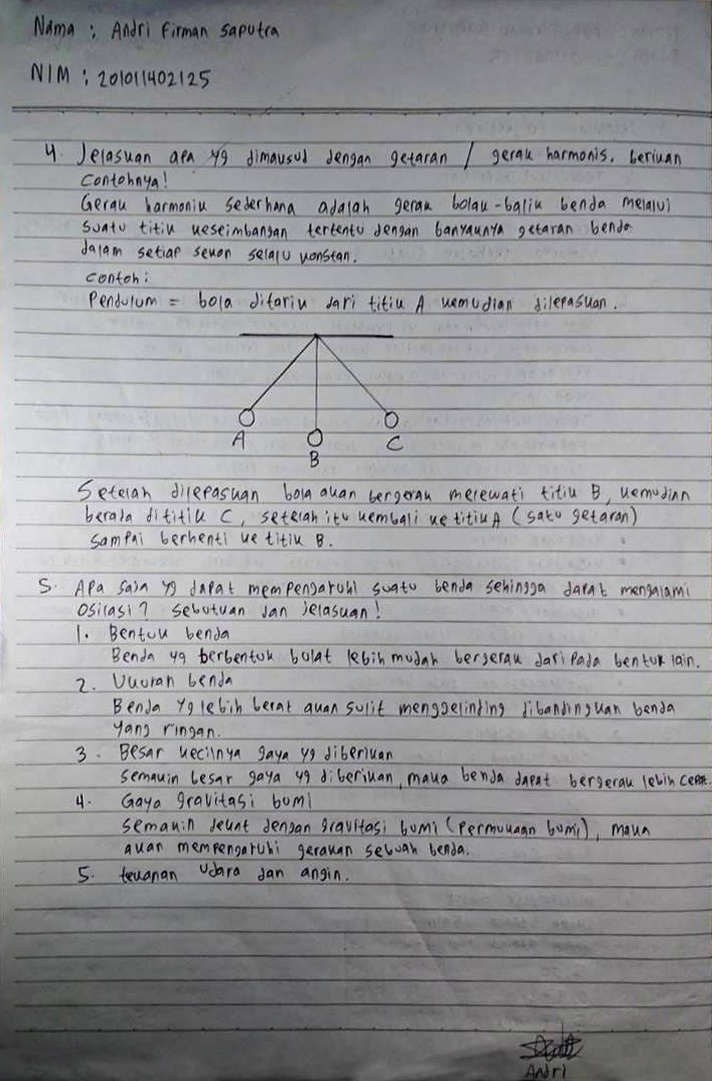 Nama : Andri Firman Saputra
NIM : 201011402125
4. Jelaskan apa yg dimaksud dengan getaran / gerak harmonis. berikan
Contohnya!
Gerak harmonik sederhana adalah gerak bolak-balik benda melalui
suatu titik keseimbangan tertentu dengan banyaknya getaran benda
dalam setiap sekon selalu konstan.
Contoh :
Pendulum = bola ditarik dari titik A kemudian dilepaskan.
A
B
C
Setelah dilepaskan bola akan bergerak melewati titik B, kemudian
berada dititik C, setelah itu kembali ke titik A (satu getaran)
sampai berhenti ke titik B.
5. Apa saja yg dapat mempengaruhi suatu benda sehingga dapat mengalami
Osilasi? Sebutkan dan jelaskan!
1. Bentuk benda
Benda yg berbentuk bulat lebih mudah bergerak dari pada bentuk lain.
2. Ukuran benda
Benda yg lebih berat akan sulit menggelinding dibandingkan benda
yang ringan.
3. Besar kecilnya gaya yg diberikan
Semakin besar gaya yg diberikan, maka benda dapat bergerak lebih cepat.
4. Gaya gravitasi bumi
Semakin dekat dengan gravitasi bumi (permukaan bumi), maka
akan mempengaruhi gerakan sebuah benda.
5. tekanan udara dan angin.
Andri